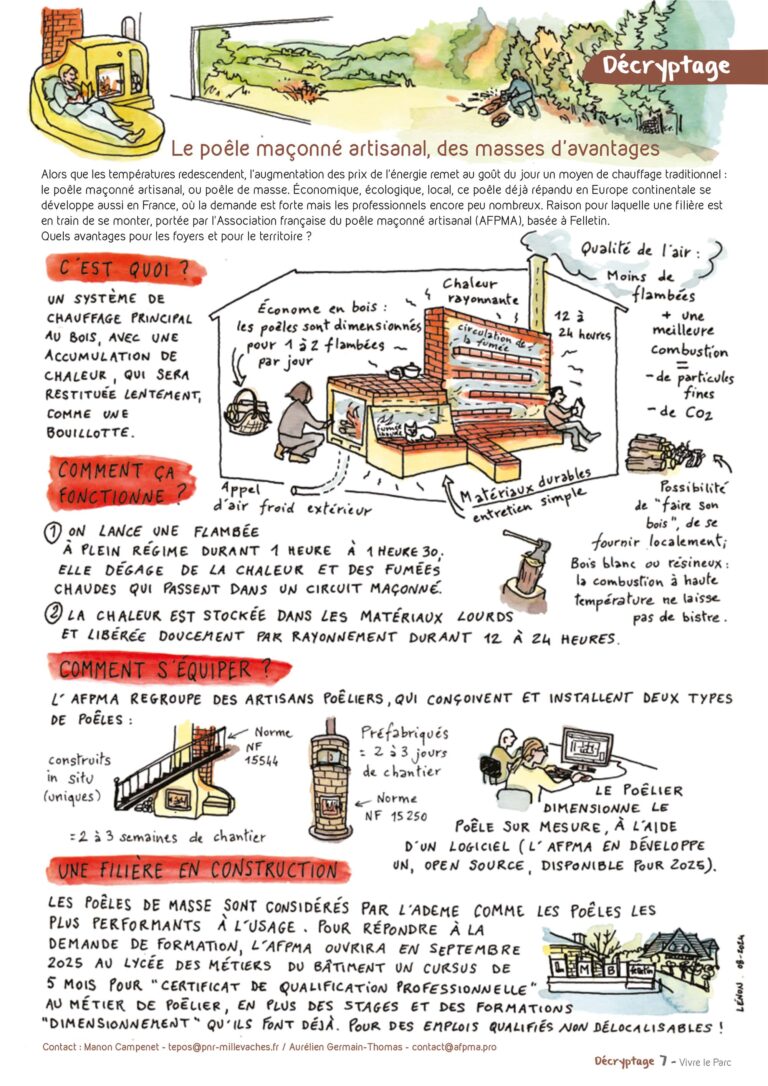 Décryptage
Le poêle maçonné artisanal, des masses d'avantages
Alors que les températures redescendent, l'augmentation des prix de l'énergie remet au goût du jour un moyen de chauffage traditionnel :
le poêle maçonné artisanal, ou poêle de masse. Économique, écologique, local, ce poêle déjà répandu en Europe continentale se
développe aussi en France, où la demande est forte mais les professionnels encore peu nombreux. Raison pour laquelle une filière est
en train de se monter, portée par l'Association française du poêle maçonné artisanal (AFPMA), basée à Felletin.
Quels avantages pour les foyers et pour le territoire ?
C'EST QUOI ?
UN SYSTÈME DE
CHAUFFAGE PRINCIPAL
AU BOIS, AVEC UNE
ACCUMULATION DE
CHALEUR, QUI SERA
RESTITUÉE LENTEMENT,
COMME UNE
BOUILLOTTE.
Économe en bois :
les poêles sont dimensionnés
pour 1 à 2 flambées
par jour
Chaleur
rayonnante
12 à
24 heures
circulation de
la fumée
fumée
chaude
Appel
d'air froid extérieur
Matériaux durables
entretien simple
Qualité de l'air :
Moins de
flambées
+ une
meilleure
combustion
=
- de particules
fines
- de CO2
Possibilité
de "faire son
bois", de se
fournir localement;
Bois blanc ou résineux :
la combustion à haute
température ne laisse
pas de bistre.
COMMENT ÇA
FONCTIONNE ?
1 ON LANCE UNE FLAMBÉE
À PLEIN RÉGIME DURANT 1 HEURE À 1 HEURE 30,
ELLE DÉGAGE DE LA CHALEUR ET DES FUMÉES
CHAUDES QUI PASSENT DANS UN CIRCUIT MAÇONNÉ.
2 LA CHALEUR EST STOCKÉE DANS LES MATÉRIAUX LOURDS
ET LIBÉRÉE DOUCEMENT PAR RAYONNEMENT DURANT 12 À 24 HEURES.
COMMENT S'ÉQUIPER ?
L'AFPMA REGROUPE DES ARTISANS POÊLIERS, QUI CONÇOIVENT ET INSTALLENT DEUX TYPES
DE POÊLES :
construits
in situ
(uniques)
Norme
NF
15544
= 2 à 3 semaines de chantier
Préfabriqués
= 2 à 3 jours
de chantier
Norme
NF 15250
LE POÊLIER
DIMENSIONNE LE
POÊLE SUR MESURE, À L'AIDE
D'UN LOGICIEL (L'AFPMA EN DÉVELOPPE
UN, OPEN SOURCE, DISPONIBLE POUR 2025).
UNE FILIÈRE EN CONSTRUCTION
LES POÊLES DE MASSE SONT CONSIDÉRÉS PAR L'ADEME COMME LES POÊLES LES
PLUS PERFORMANTS À L'USAGE. POUR RÉPONDRE À LA
DEMANDE DE FORMATION, L'AFPMA OUVRIRA EN SEPTEMBRE
2025 AU LYCÉE DES MÉTIERS DU BÂTIMENT UN CURSUS DE
5 MOIS POUR "CERTIFICAT DE QUALIFICATION PROFESSIONNELLE"
AU MÉTIER DE POÊLIER, EN PLUS DES STAGES ET DES FORMATIONS
"DIMENSIONNEMENT" QU'ILS FONT DÉJÀ. POUR DES EMPLOIS QUALIFIÉS NON DÉLOCALISABLES !
LMB
LÉNON. 08-2024
Contact : Manon Campenet - tepos@pnr-millevaches.fr / Aurélien Germain-Thomas - contact@afpma.pro
Décryptage 7 - Vivre le Parc